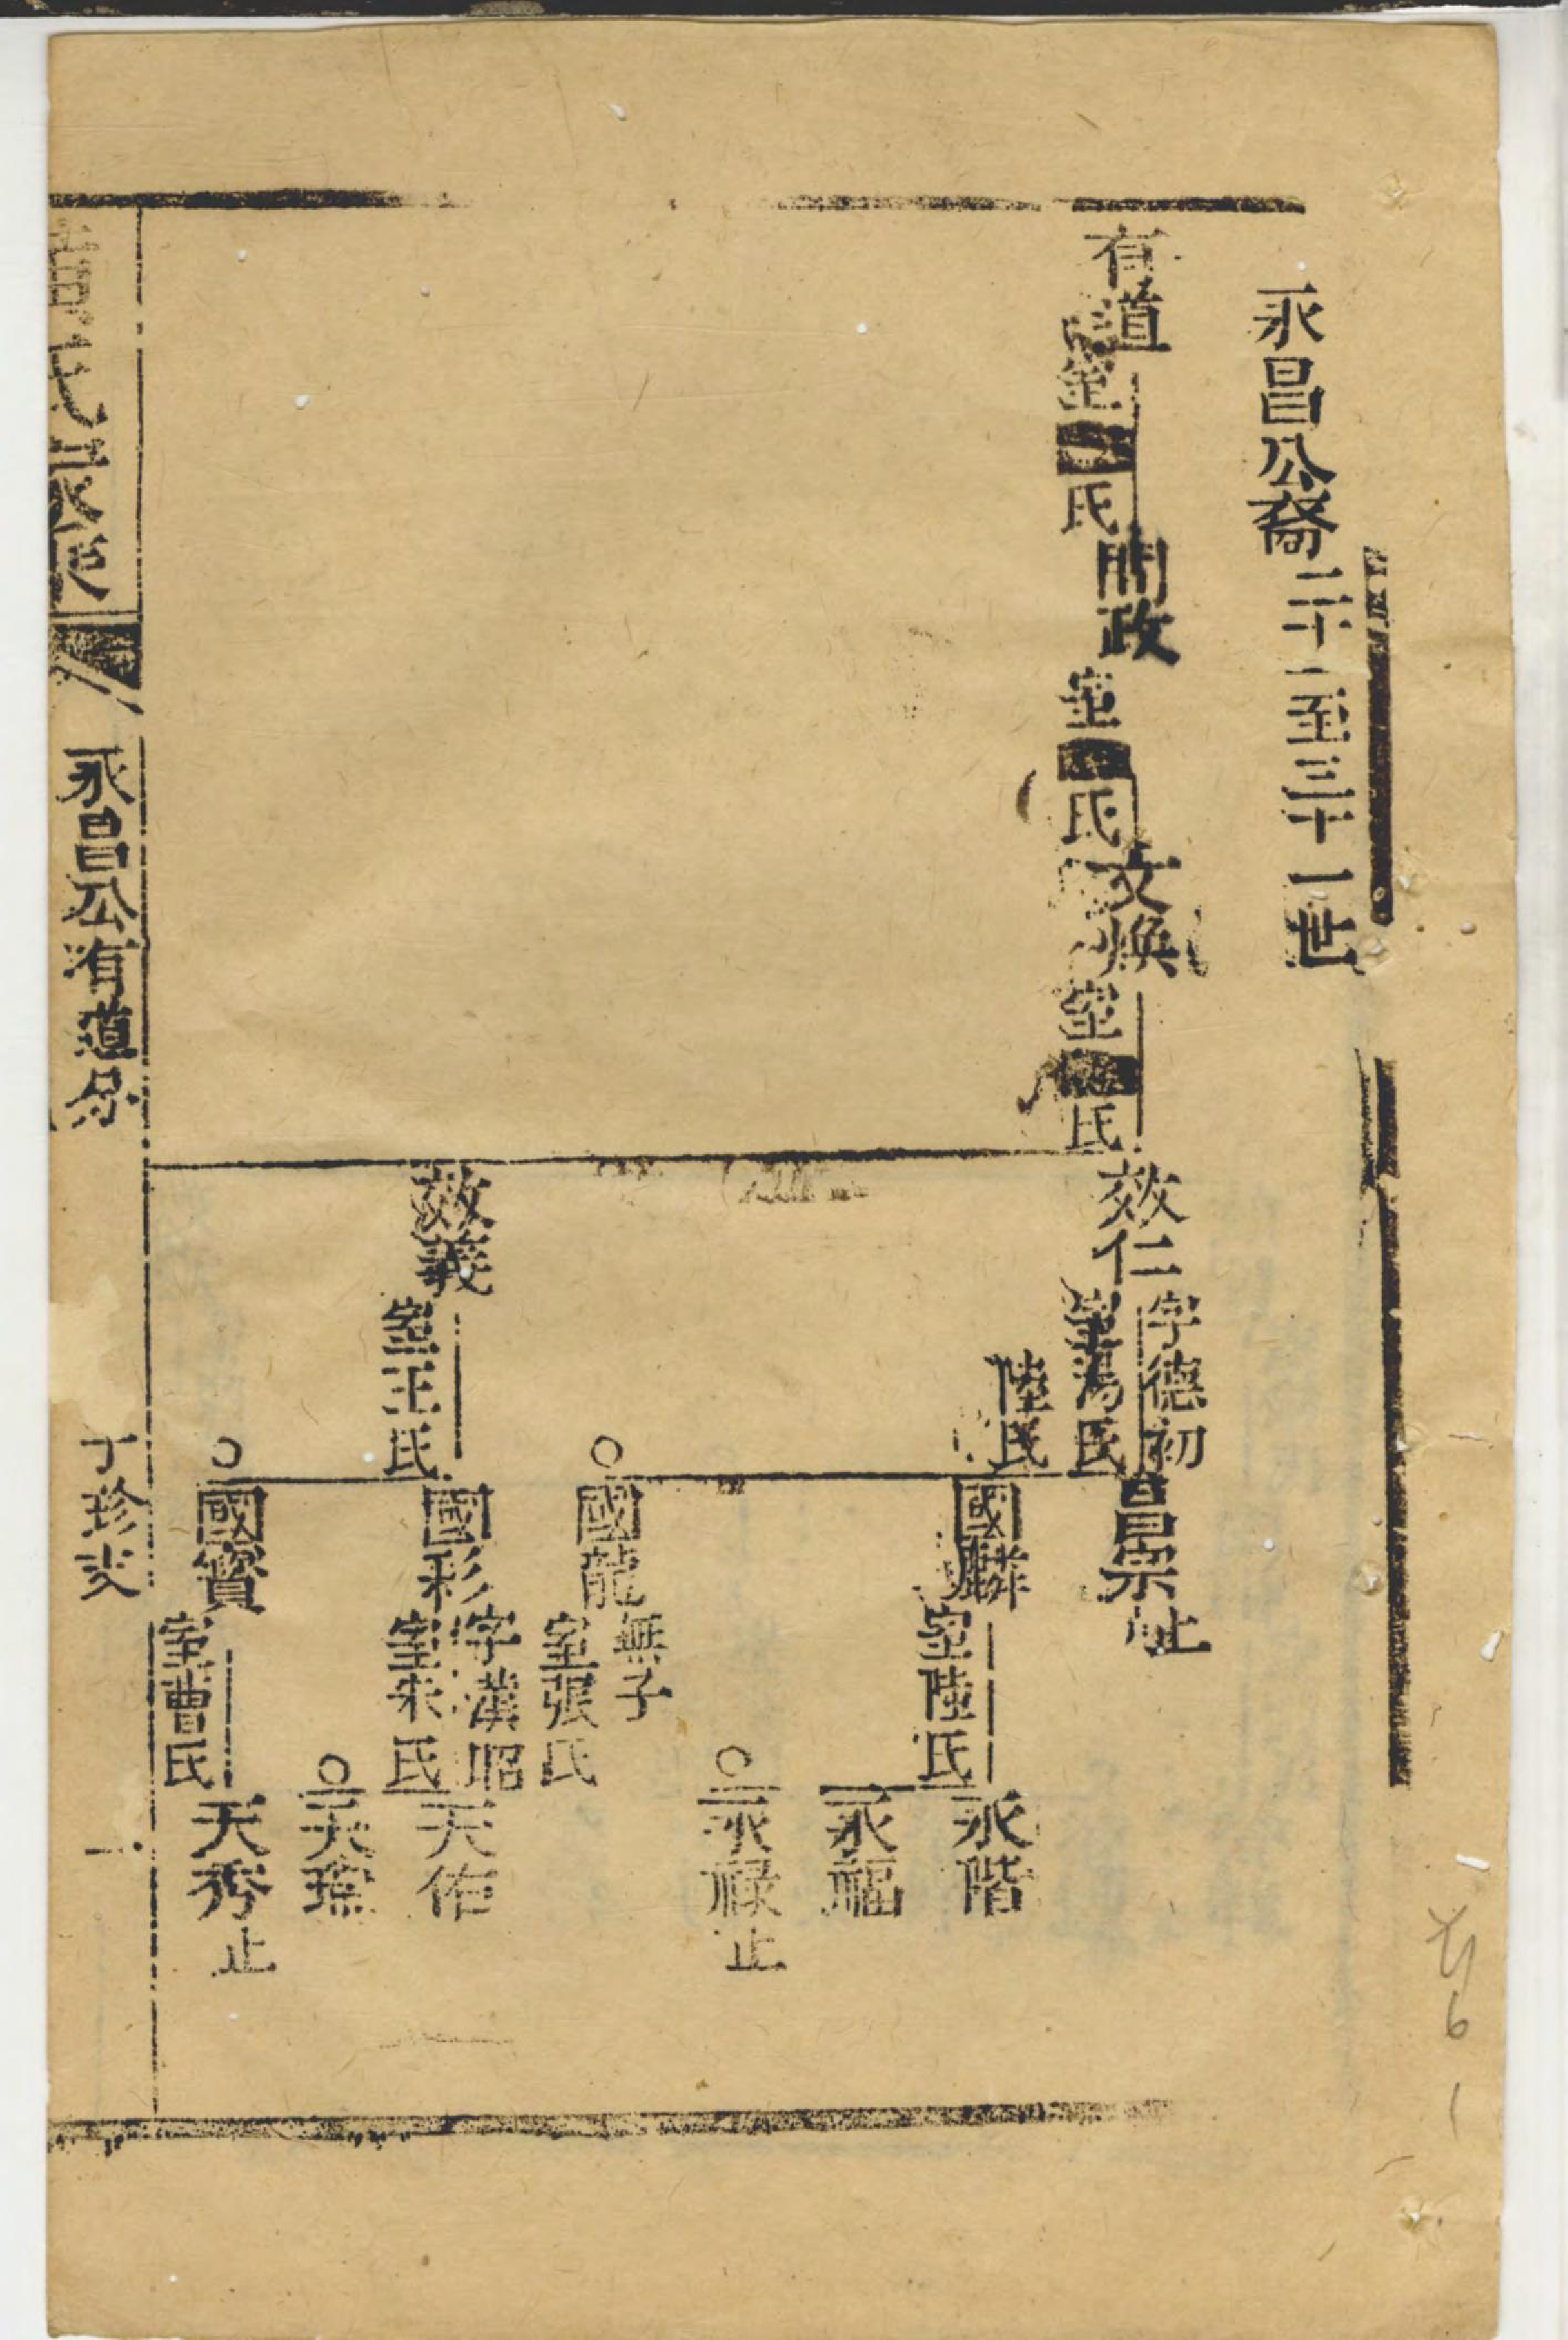 永昌公裔二十一至三十一世
有道
室
氏
問政
室
氏
文煥
室
氏
效仁
字德初
室湯氏
陸氏
昌宗止
國麟
室陸氏
永階
永福
永祿止
國龍
無子
室張氏
效義
室王氏
國彩
字漢昭
室朱氏
天佑
天瑞
國寶
室曹氏
天秀止
氏家
永昌公有道
丁珍
一
6